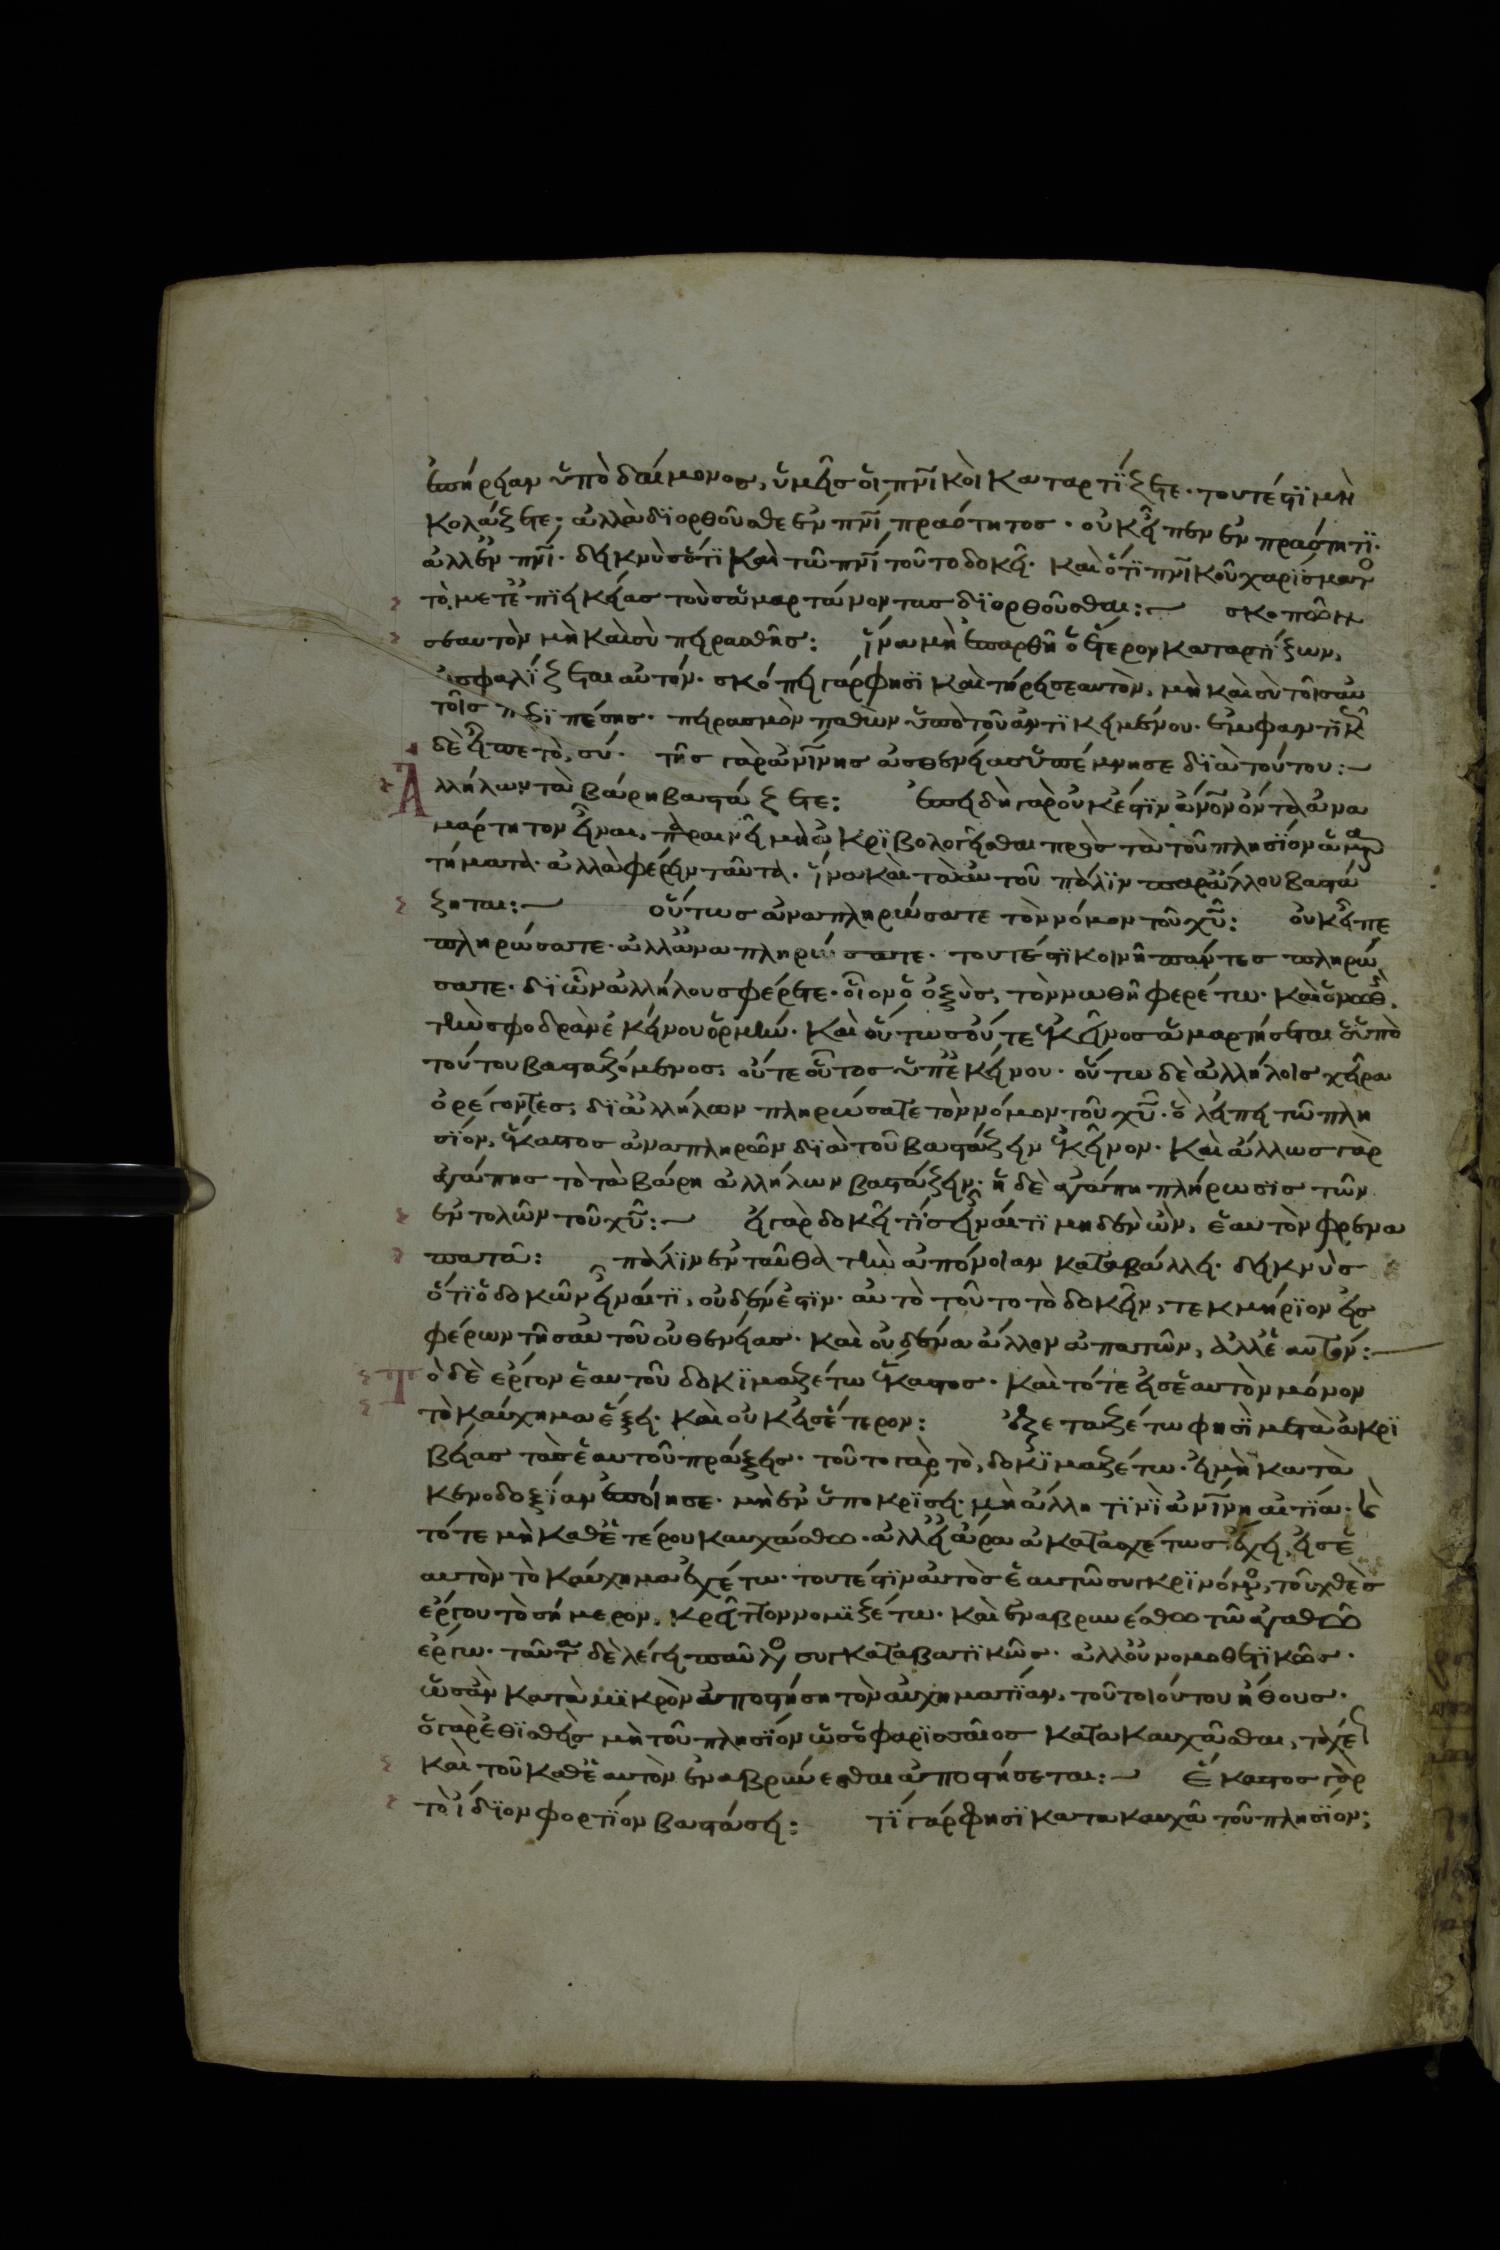 ἐπήρειαν ὑπὸ δαίμονος, ὑμεῖς οἱ πνικοὶ καταρτίζετε· τουτέστι μὴ
κολάζετε· ἀλλὰ διορθοῦσθε ἐν πνι πραότητος· οὐκ εἶπεν ἐν πραότητι·
ἀλλ' ἐν πνι· δεικνὺς ὅτι καὶ τῷ πνι τοῦτο δοκεῖ· καὶ ὅτι πνικοῦ χαρίσματος
τὸ μετ' ἐπιεικείας τοὺς ἁμαρτάνοντας διορθοῦσθαι: σκοπῶν
σεαυτὸν μὴ καὶ σὺ πειρασθῇς: ἵνα μὴ ἐπαρθῇ ὁ ἕτερον καταρτίζων,
ἀσφαλίζεται αὐτόν· σκόπει γάρ φησι καὶ τήρει σεαυτὸν, μὴ καὶ σὺ τοῖς αὐ
τοῖς περιπέσῃς· πειρασμὸν παθὼν ὑπὸ τοῦ ἀντικειμένου· ἐμφαντικῶς
δὲ εἶπε τὸ, σύ· τῆς γὰρ ἀνίνης ἀσθενείας ὑπέμνησε διὰ τούτου:
Ἀλλήλων τὰ βάρη βαστάζετε: ἐπειδὴ γὰρ οὐκ ἔστιν ἀνον ὄντα ἀνα
μάρτητον εἶναι, παραινεῖ μὴ ἀκριβολογεῖσθαι πρὸς τὰ τοῦ πλησίον ἁμαρ
τήματα· ἀλλὰ φέρειν ταῦτα· ἵνα καὶ τὰ αὐτοῦ πάλιν παρ' ἄλλου βαστά
ζηται: οὕτως ἀναπληρώσατε τὸν νόμον τοῦ χυ: οὐκ εἶπε
πληρώσατε· ἀλλ' ἀναπληρώσατε· τουτέστι κοινῇ πάντες πληρώ
σατε· δι' ὧν ἀλλήλους φέρετε· οἷον ὁ ὀξὺς, τὸν νωθῆ φερέτω· καὶ ὁ νωθὴς,
τὴν σφοδρὰν ἐκείνου ὁρμήν· καὶ οὕτως οὔτε ἐκεῖνος ἁμαρτήσεται ὁ ὑπὸ
τούτου βασταζόμενος, οὔτε οὗτος ὑπ' ἐκείνου· οὕτω δὲ ἀλλήλοις χεῖρα
ὀρέγοντες, δι' ἀλλήλων πληρώσατε τὸν νόμον τοῦ χυ· ὃ λείπει τῷ πλη
σίον, ἕκαστος ἀναπληρῶν διὰ τοῦ βαστάζειν ἐκεῖνον· καὶ ἄλλως γὰρ
ἀγάπης τὸ τὰ βάρη ἀλλήλων βαστάζειν· ἡ δὲ ἀγάπη πλήρωσις τῶν
ἐντολῶν τοῦ χυ: εἰ γὰρ δοκεῖ τίς εἶναί τι μηδὲν ὢν, ἑαυτὸν φρενα
πατᾷ: πάλιν ἐνταῦθα τὴν ἀπόνοιαν καταβάλλει· δεικνὺς
ὅτι ὁ δοκῶν εἶναί τι, οὐδέν ἐστιν· αὐτὸ τοῦτο τὸ δοκεῖν, τεκμήριον εἰς
φέρων τῆς αὐτοῦ οὐθενείας· καὶ οὐδένα ἄλλον ἀπατῶν, ἀλλ' ἑαυτόν:
Τὸ δὲ ἔργον ἑαυτοῦ δοκιμαζέτω ἕκαστος· καὶ τότε εἰς ἑαυτὸν μόνον
τὸ καύχημα ἕξει· καὶ οὐκ εἰς ἕτερον: ἐξεταζέτω φησὶ μετὰ ἀκρι
βείας τὰς ἑαυτοῦ πράξεις· τοῦτο γὰρ τὸ, δοκιμαζέτω· εἰ μὴ κατὰ
κενοδοξίαν ἐποίησε· μὴ ἐν ὑποκρίσει· μὴ ἄλλῃ τινὶ ἀνίνῃ αἰτίᾳ· καὶ
τότε μὴ καθ' ἑτέρου καυχάσθω· ἀλλ' εἰ ἄρα ἀκατασχέτως ἔχει, εἰς ἑ
αυτὸν τὸ καύχημα ἐχέτω· τουτέστιν αὐτὸς ἑαυτῷ συγκρινόμενος, τοῦ χθὲς
ἔργου τὸ σήμερον, κρεῖττον νομιζέτω· καὶ ἐναβρυνέσθω τῷ ἀγαθῷ
ἔργῳ· ταῦτα δὲ λέγει παῦλος συγκαταβατικῶς· ἀλλ' οὐ νομοθετικῶς·
ὡς ἂν κατὰ μικρὸν ἀποστήσῃ τὸν αὐχηματίαν, τοῦ τοιούτου ἤθους·
ὁ γὰρ ἐθισθεὶς μὴ τοῦ πλησίον ὡς ὁ φαρισσαῖος κατακαυχᾶσθαι, ταχέως
καὶ τοῦ καθ' ἑαυτὸν ἐναβρύνεσθαι ἀποστήσεται: Ἕκαστος γὰρ
τὸ ἴδιον φορτίον βαστάσει: τί γάρ φησι κατακαυχᾷ τοῦ πλησίον;